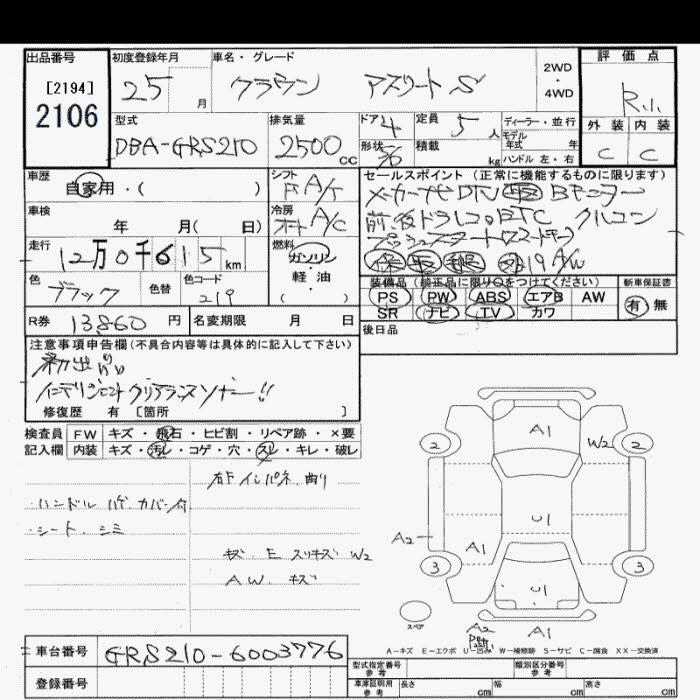 出品番号
[2194]
2106
初度登録年月
25 月
車名・グレード
クラウン アスリート S
2WD
・
4WD
評価点
R.1.
外装 内装
C C
型式
DBA-GRS210
排気量
2500 cc
ドア 4
形状 5/6
定員 5 人
積載 kg
ディーラー・並行
モデル
年式 年
ハンドル 左・右
車歴
自家用・( )
シフト
F A/T
車検
年 月( 日)
冷房
オート A/C
走行
12万0千615 km
燃料
ガソリン
軽・油
( )
色
ブラック
色替
色コード
219
R券 13860 円
名変期限 月 日
セールスポイント (正常に機能するものに限ります)
メーカーナビ DTV Bモニター
前後ドラレコ ETC クルコン
プッシュスタート(スマートキー)
19 A/W
装備品 (純正品に限り○をつけてください)
PS PW ABS エアB AW
SR ナビ TV カワ
新車保証書
有 無
後日品
注意事項申告欄(不具合内容等は具体的に記入して下さい)
初出品
インテリジェントクリアランスソナー!!
修復歴 有 [箇所 ]
検査員 FW キズ・飛石・ヒビ割・リペア跡・×要
記入欄 内装 キズ・汚レ・コゲ・穴・スレ・キレ・破レ
右F インパネ 曲り
・ハンドル ハゲ カバー付
・シート シミ
キズ E スリキズ W2
A.W. キズ
A1
2 W2 2
U1
A2 A1
3 U1 3
スペア
A2
A1
A-キズ E-エクボ U-凹み W-補修跡 S-サビ C-腐食 XX-交換済
車台番号 GRS210-6003776
登録番号
型式指定番号
参考
類別区分番号
参考
車庫証明用
参考
長さ cm 幅 cm 高さ cm